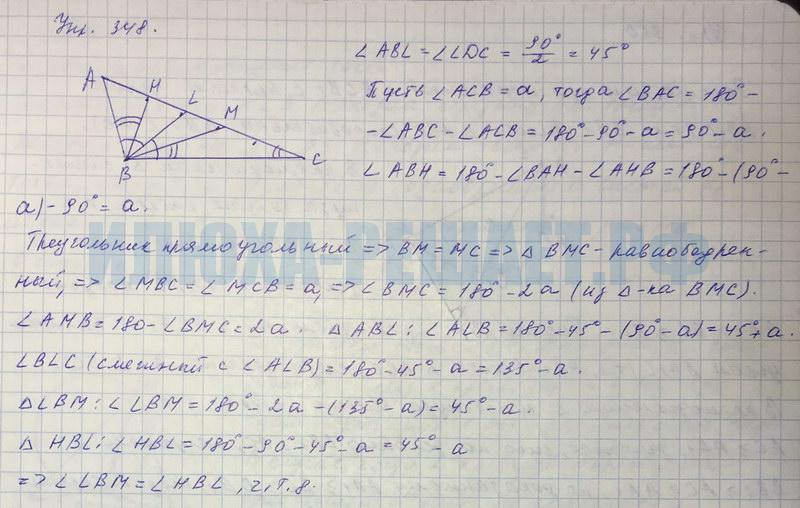 Упр. 348.
∠ABL = ∠LDC = 90°/2 = 45°
Пусть ∠ACB = a, тогда ∠BAC = 180° -
- ∠ABC - ∠ACB = 180° - 90° - a = 90° - a.
∠ABH = 180° - ∠BAH - ∠AHB = 180° - (90° -
a) - 90° = a.
A
H
L
M
B
C
ИЛЮХА-РЕШАЕТ.РФ
Треугольник прямоугольный => BM = MC => △ BMC - равнобедрен-
ный, => ∠MBC = ∠MCB = a, => ∠BMC = 180° - 2a (из △-ка BMC).
∠AMB = 180 - ∠BMC = 2a. △ ABL: ∠ALB = 180° - 45° - (90° - a) = 45° + a.
∠BLC (смежный с ∠ALB) = 180° - 45° - a = 135° - a.
△LBM: ∠LBM = 180° - 2a - (135° - a) = 45° - a.
△ HBL: ∠HBL = 180° - 90° - 45° - a = 45° - a
=> ∠LBM = ∠HBL, ч.т.д.